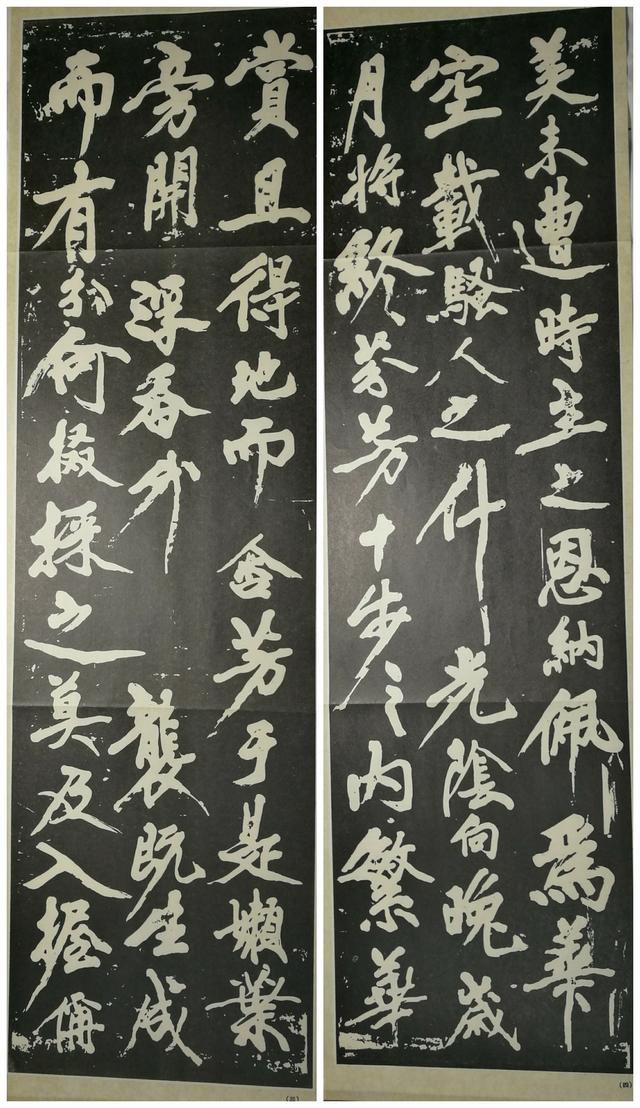 賞且得地而含芳于是嫩葉
旁開浮香外襲既生成
而有分何掇採之莫及入握偁
(三)
美未遭時主之恩納佩爲華
空載騷人之什光陰向晚歲
月將終芬芳十步之内繁華
(四)